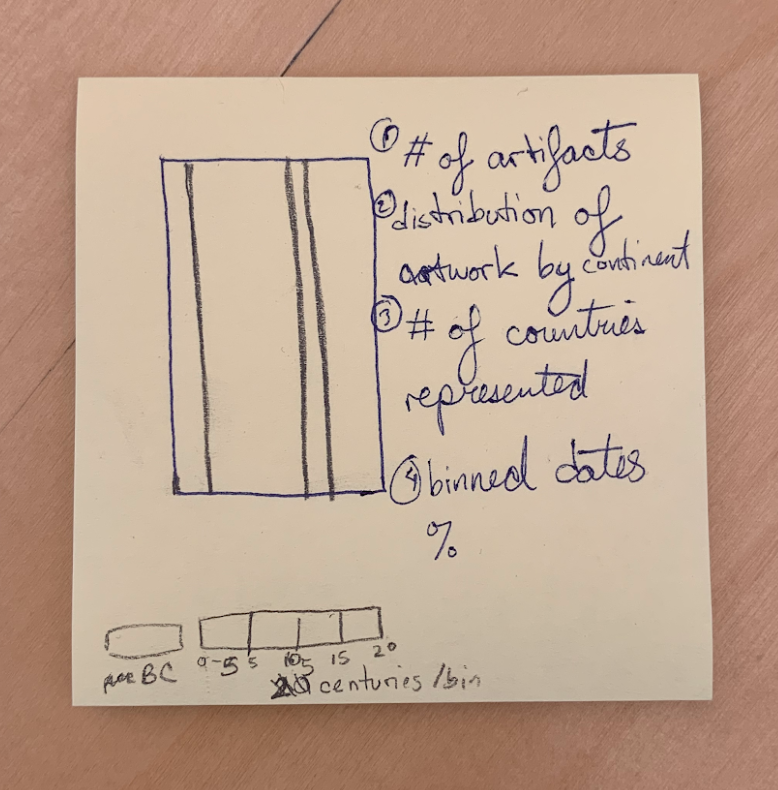 ① # of artifacts
② distribution of
artwork by continent
③ # of countries
represented
④ binned dates
%
BC 0-5 5 10 15 20
5 centuries/bin